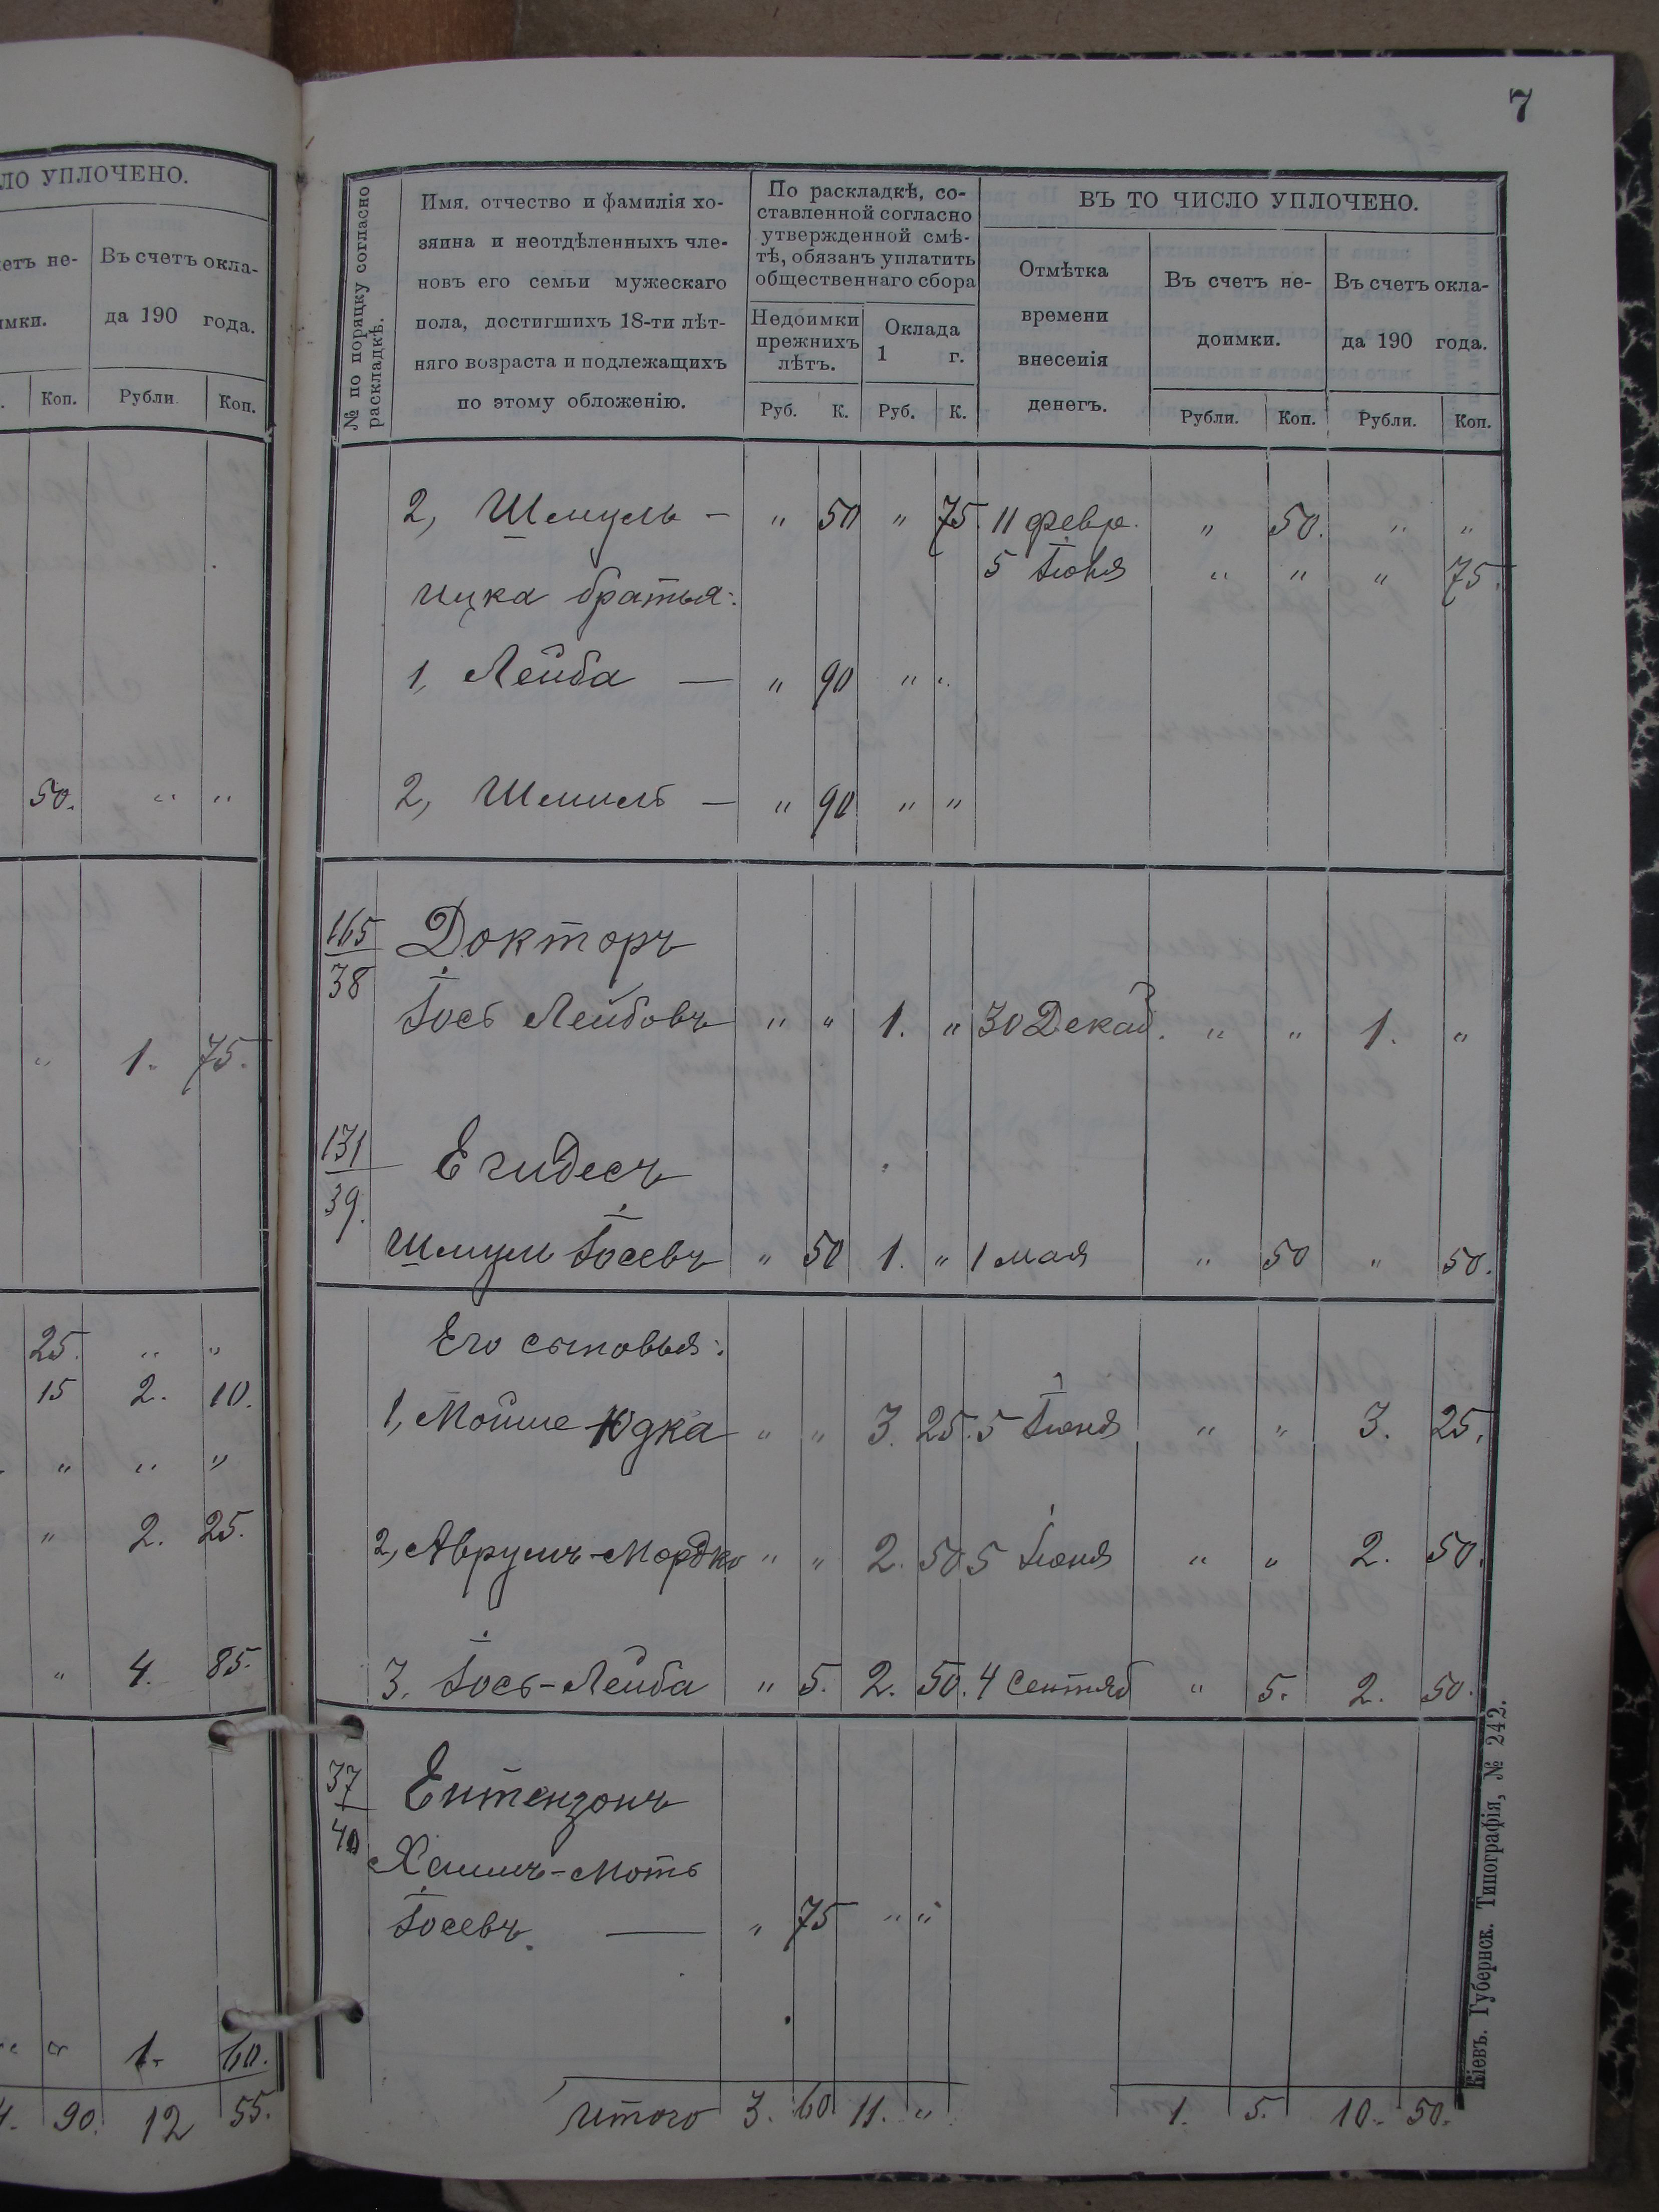 ЛО УПЛОЧЕНО.
Въ счетъ окла-
да 190 года.
Коп. Рубли Коп.
50. " "
" 1. 75.
25. " "
15 2. 10.
" " "
" 2. 25.
" 4. 85.
1. 60.
90. 12 55.
7
№ по поряцку согласно раскладкѣ.
Имя, отчество и фамилія хо-
зяина и неотдѣленныхъ чле-
новъ его семьи мужескаго
пола, достигшихъ 18-ти лѣт-
няго возраста и подлежащихъ
по этому обложенію.
По раскладкѣ, со-
ставленной согласно
утвержденной смѣ-
тѣ, обязанъ уплатить
общественнаго сбора
Недоимки прежнихъ лѣтъ.
Оклада 1 г.
Руб. К. Руб. К.
ВЪ ТО ЧИСЛО УПЛОЧЕНО.
Отмѣтка
времени
внесенія
денегъ.
Въ счетъ не-
доимки.
Въ счетъ окла-
да 190 года.
Рубли. Коп. Рубли. Коп.
2, Шмуль — " 50 " 75. 11 февр. " 50. " "
5 Іюня " " " 75.
Ицка братья:
1, Лейба — " 90 " "
2, Шмиль — " 90 " "
165
38
Докторъ
Іось Лейбовъ " " 1. " 30 Декаб. " " 1. "
131
39.
Егидесъ
Шмуль Іосевъ " 50 1. " 1 мая " 50 " 50.
Его сыновья:
1, Мойше Юдка " " 3. 25. 5 Іюня " " 3. 25.
2, Аврумъ-Мордко " " 2. 50 5 Іюня " " 2. 50.
3. Іось-Лейба " 5. 2. 50. 4 Сентяб " 5. 2. 50.
37
40
Ентензонъ
Хаимъ-Моть
Іосевъ. — " 75 " "
Итого 3. 60 11. " 1. 5. 10. 50.
Кіевъ. Губернск. Типографія, № 242.